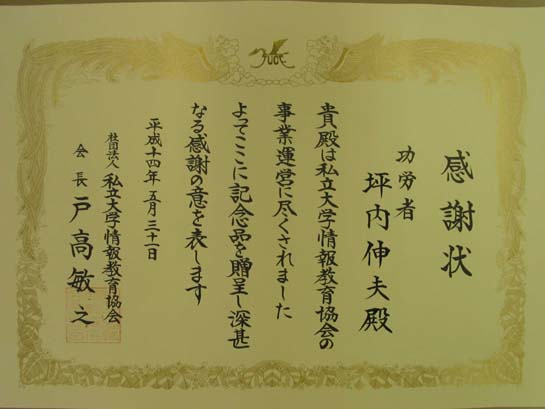 感謝状
功労者
坪内伸夫殿
貴殿は私立大学情報教育協会の
事業運営に尽くされました
よってここに記念品を贈呈し深甚
なる感謝の意を表します
平成十四年五月三十一日
社団法人 私立大学情報教育協会
会長 戸高敏之